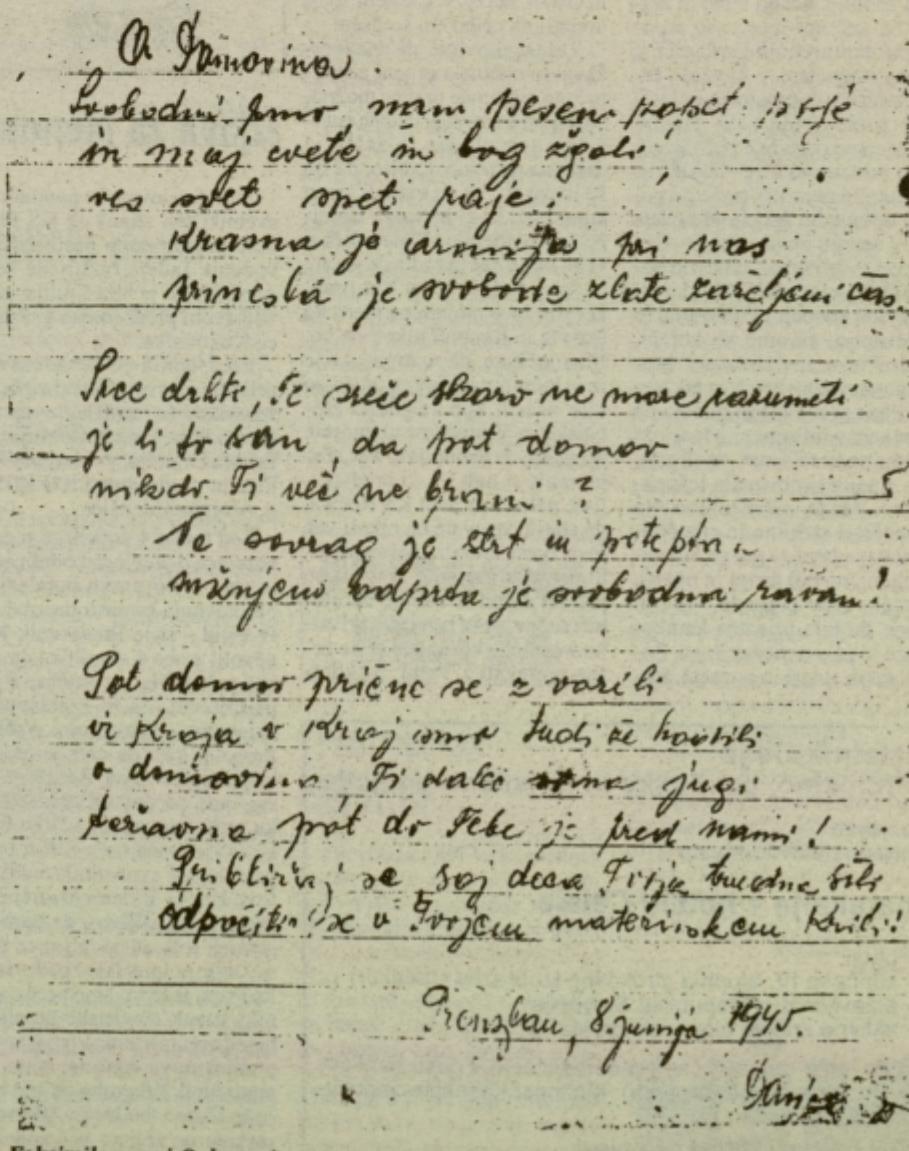 O Domovina
Svobodni smo nam pesem zopet poje
in maj cvete in bog žgoli
ves svet spet raje:
Krasna je pri nas
prinesla je svobode zlate čas.
Srce drhti, Te sreče skoro ne more razumeti
je li to san, da pot domov
nikdo Ti več ne brani?
Ta sovrag je strt in
odprta je svobodna ravan!
Pot domov prične se z vozili
iz Kraja v Kraj smo tudi že hodili
o domovina, Ti daleč na jugi
težavna pot do Tebe je pred nami!
Približaj se, saj deca Tvoja trudna sili
odpočiti se v Tvojem materinskem Krili!
Prenzlau, 8. junija 1945.